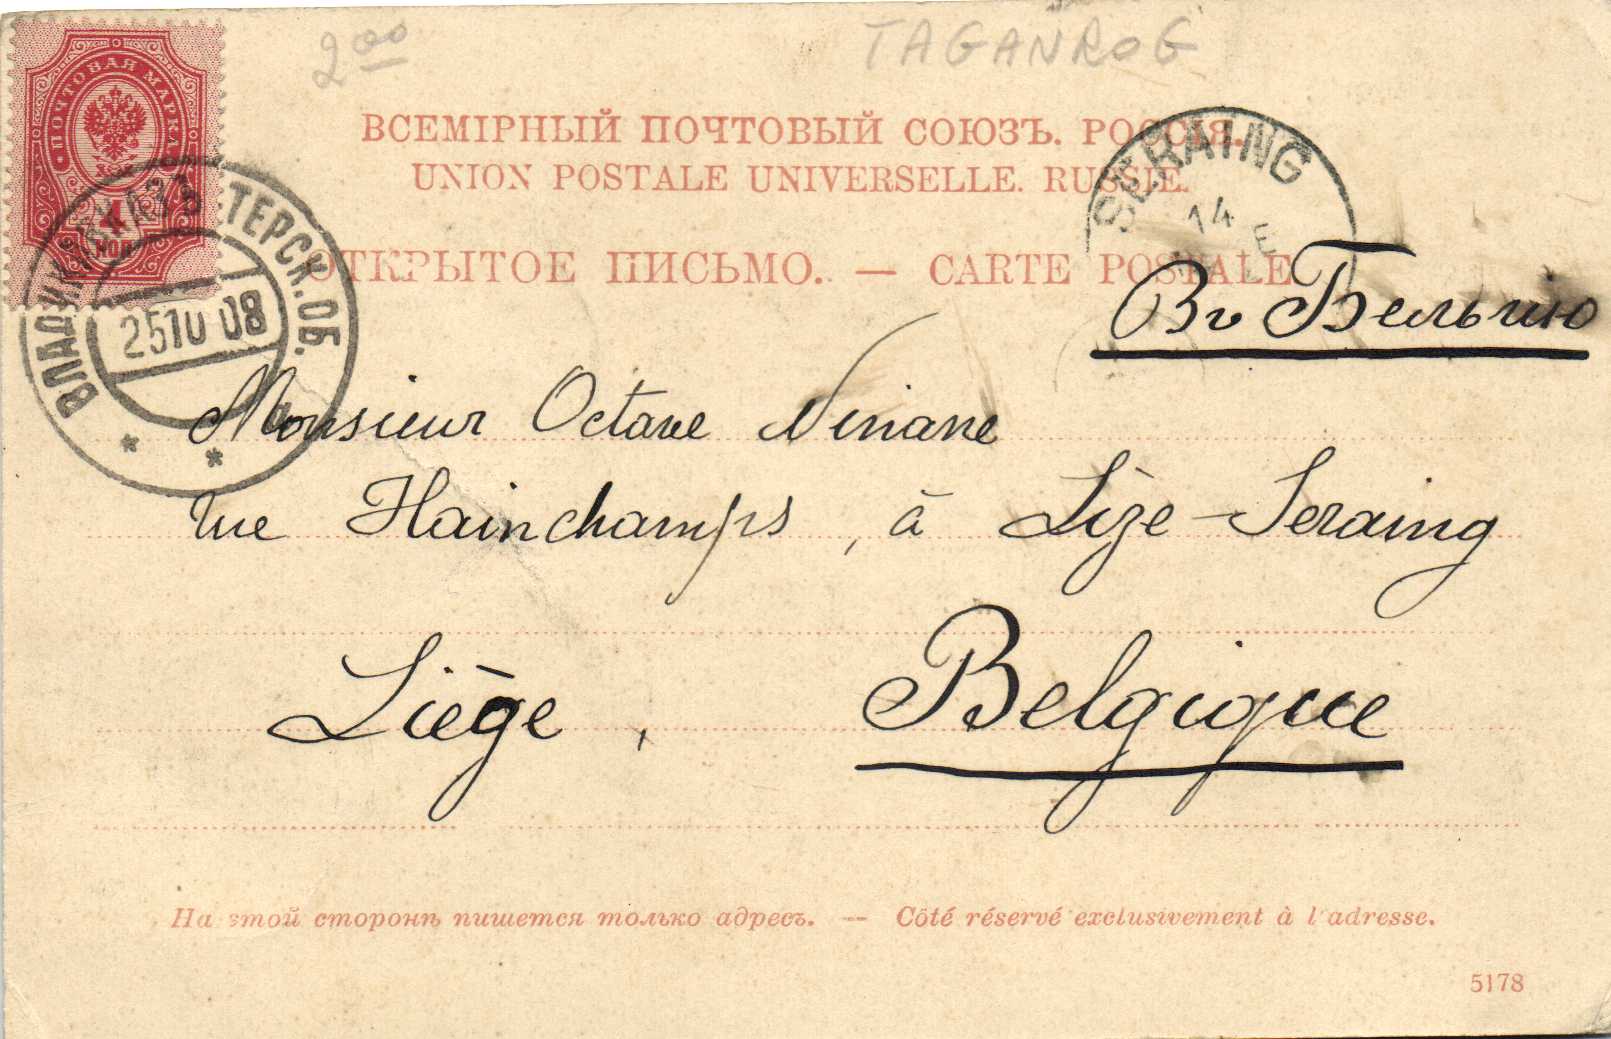 2⁰⁰ TAGANROG
ПОЧТОВАЯ МАРКА
4 КОП
ВСЕМІРНЫЙ ПОЧТОВЫЙ СОЮЗЪ. РОССІЯ.
UNION POSTALE UNIVERSELLE. RUSSIE.
SERAING
14
E
ОТКРЫТОЕ ПИСЬМО. — CARTE POSTALE
ВЛАДИКАВКАЗЪ ТЕРСК. ОБ.
25 10 08
a
Въ Бельгію
Monsieur Octave Ninane
rue Hainchamps, à Lize-Seraing
Liège, Belgique
На этой сторонѣ пишется только адресъ. — Côté réservé exclusivement à l'adresse.
5178